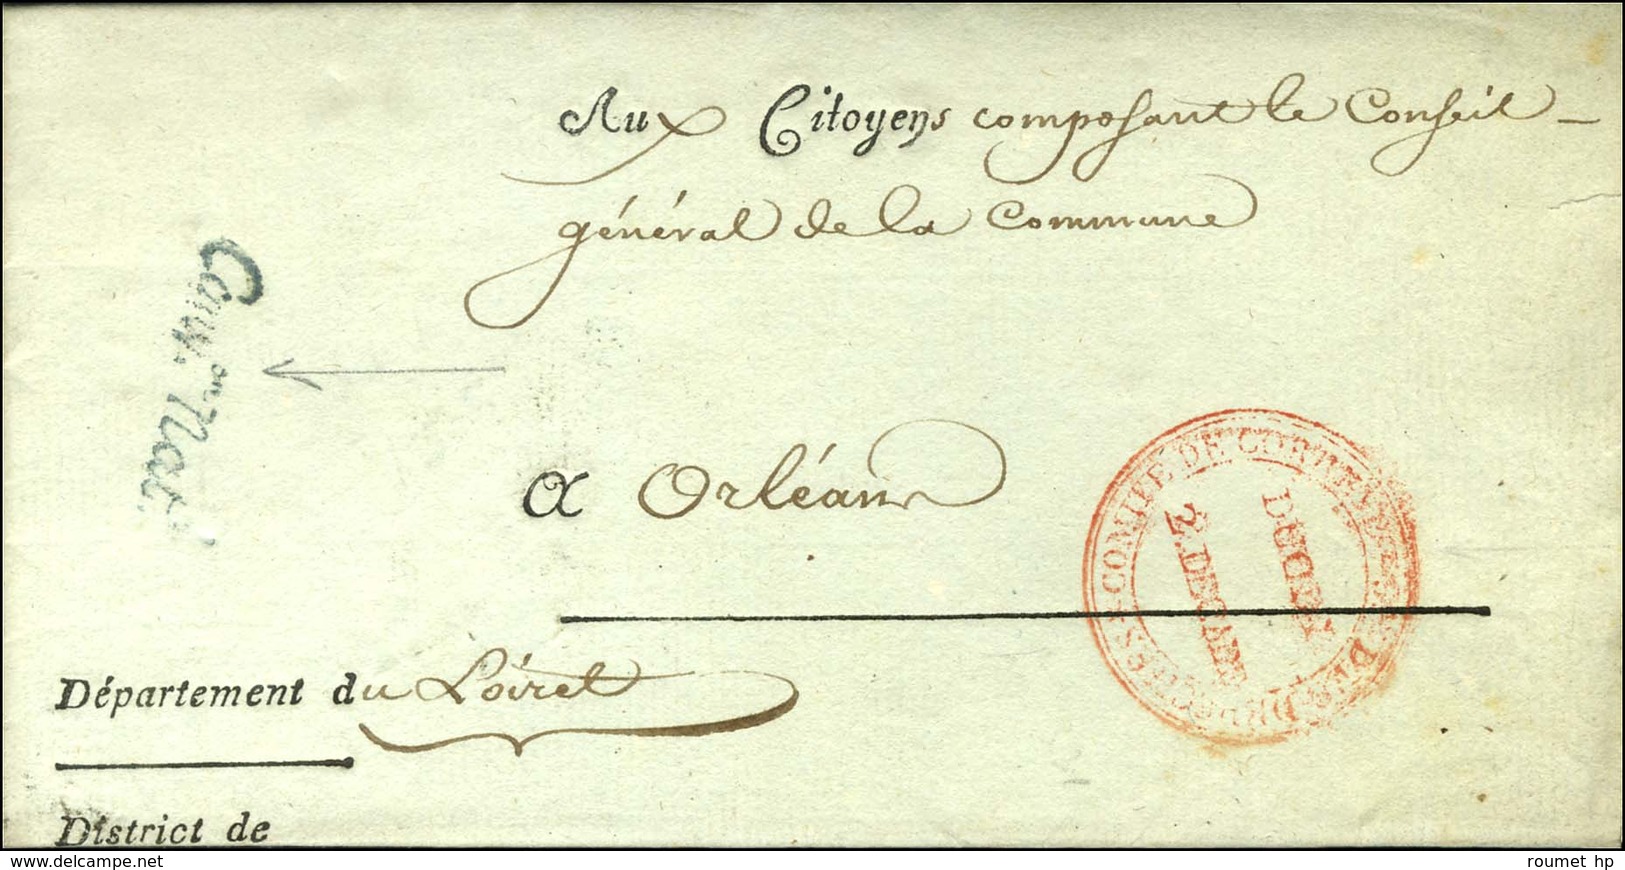 Aux Citoyens composant le Conseil
général de la Commune
Conv. on Nat.
a Orléans
COMITÉ DE CORRESP. DES DÉPÊCHES
DUODI
2. DECADE
Département du Loiret
District de
www.delcampe.net
roumet hp